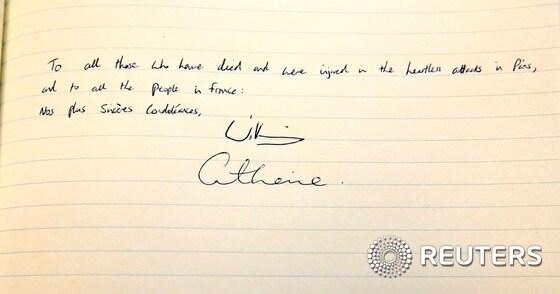 To all those who have died and were injured in the heartless attacks in Paris,
and to all the people in France:
Nos plus Sincères Condoléances,
Catherine.
REUTERS